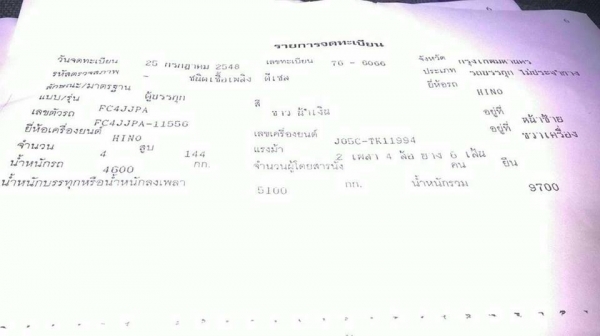 รายการจดทะเบียน
วันจดทะเบียน 25 กรกฎาคม 2548 เลขทะเบียน 76 - 6066 จังหวัด กรุงเทพมหานคร
รหัสตรวจสภาพ - ชนิดเชื้อเพลิง ดีเซล ประเภท รถบรรทุก ไม่ประจำทาง
ลักษณะ/มาตรฐาน ตู้บรรทุก ยี่ห้อรถ HINO
แบบ/รุ่น FC4JJPA สี ขาว น้ำเงิน
เลขตัวรถ FC4JJPA-11556 อยู่ที่ หน้าซ้าย
ยี่ห้อเครื่องยนต์ HINO เลขเครื่องยนต์ J05C-TK11994 อยู่ที่ ขวาเครื่อง
จำนวน 4 สูบ 144 แรงม้า 2 เพลา 4 ล้อ ยาง 6 เส้น
น้ำหนักรถ 4600 กก. จำนวนผู้โดยสารนั่ง คน ยืน
น้ำหนักบรรทุกหรือน้ำหนักลงเพลา 5100 กก. น้ำหนักรวม 9700